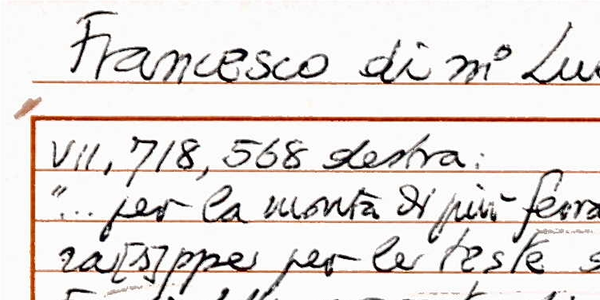 Francesco di mº Lu
VII, 718, 568 destra:
"... per la monta di più ferra
ra[s]ppe per le teste s